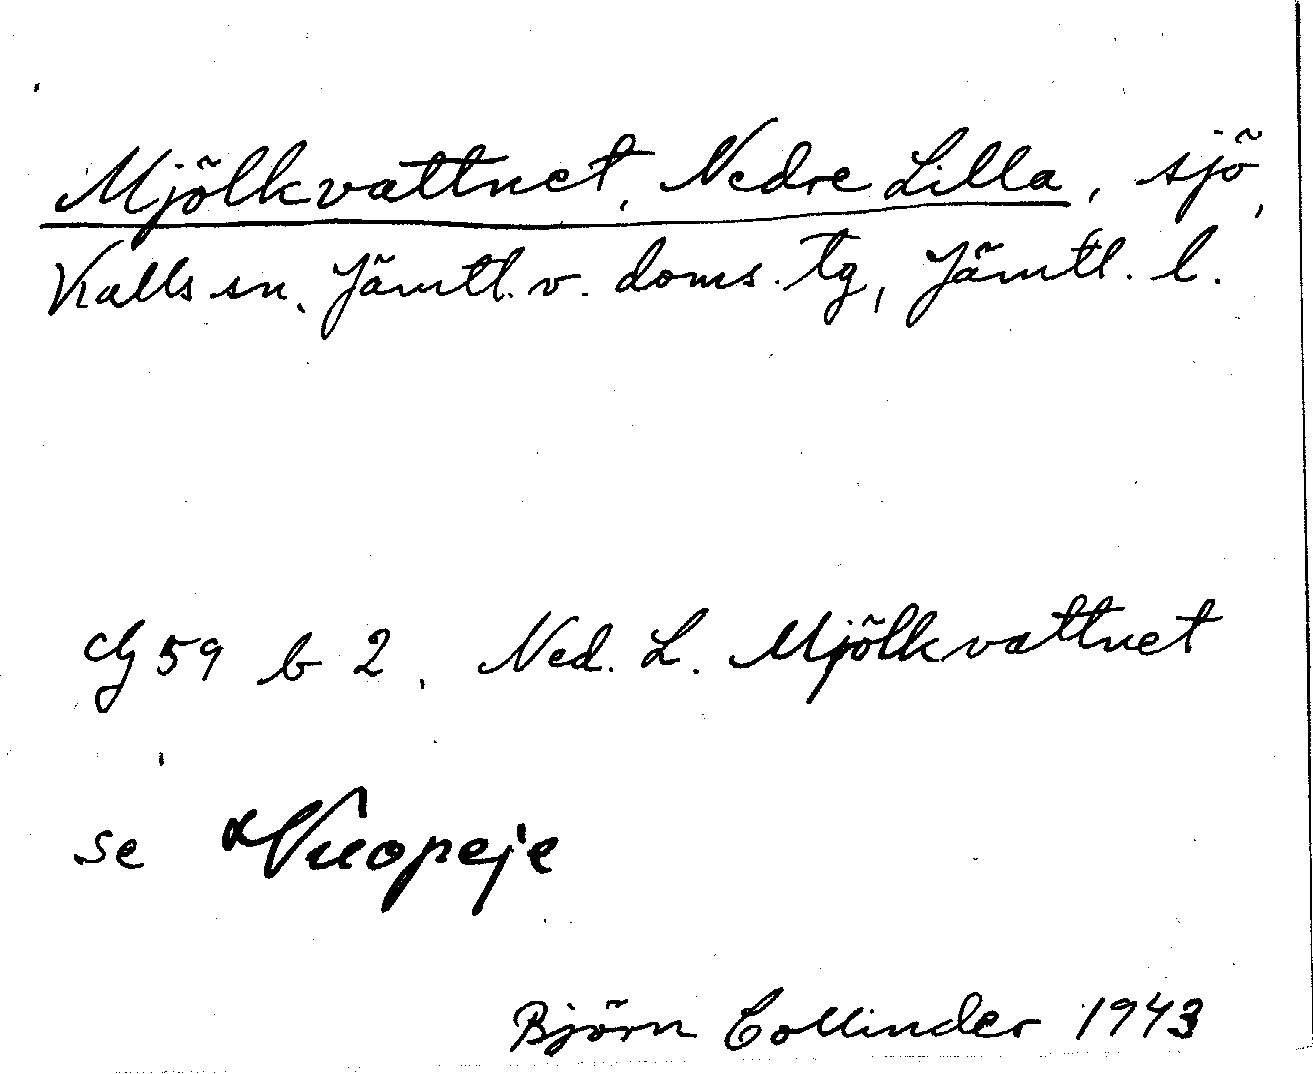 Mjölkvattnet, Nedre Lilla, sjö,
Kalls sn. Jämtl. v. doms. tg, Jämtl. l.
Cg 59 b 2. Ned. L. Mjölkvattnet
se Vuopeje
Björn Collinder 1943